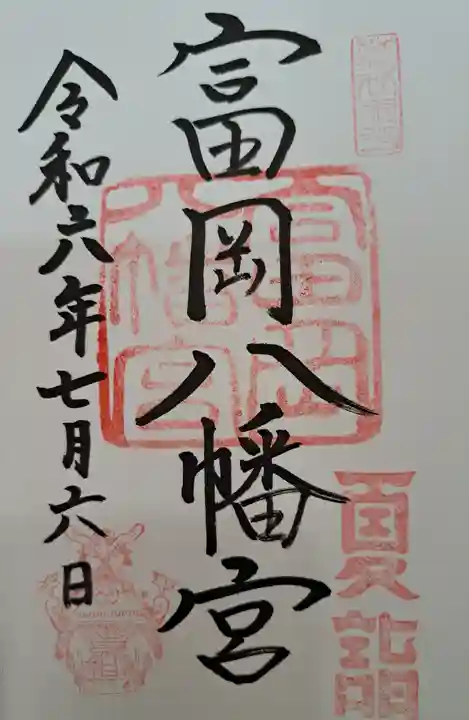 富岡八幡宮
夏詣
富岡八幡宮
令和六年七月六日